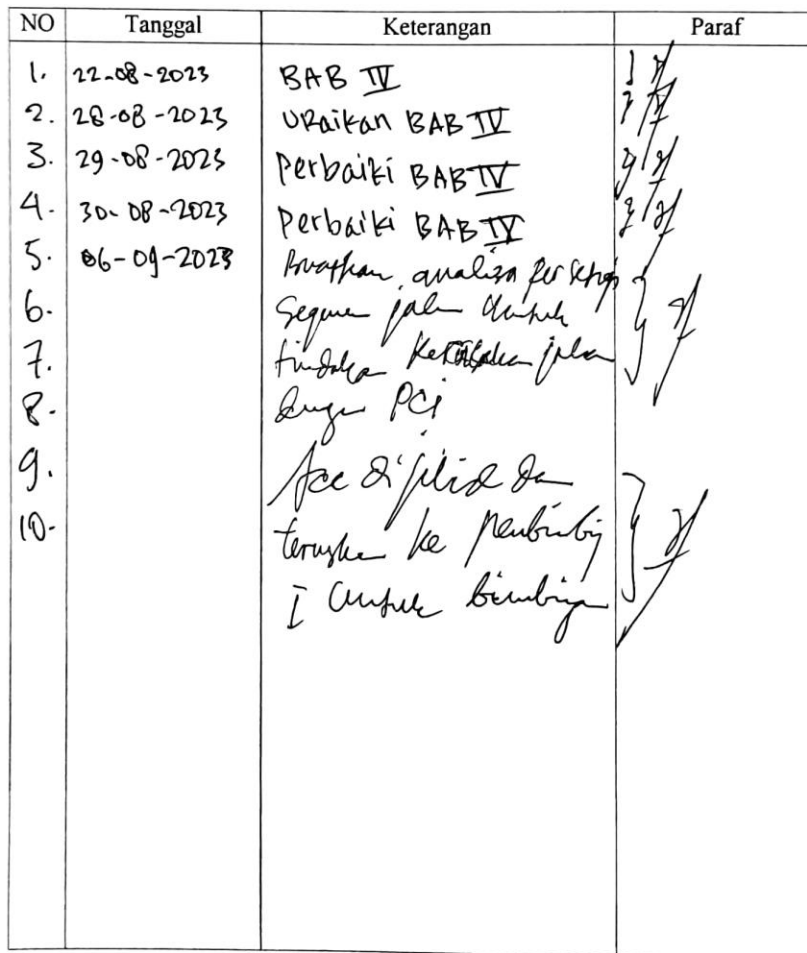 NO Tanggal Keterangan Paraf
1. 22-08-2023 BAB IV
2. 28-08-2023 URaikan BAB IV
3. 29-08-2023 Perbaiki BAB IV
4. 30-08-2023 Perbaiki BAB IV
5. 06-09-2023 analisa per setiap
6. Segmen jalan untuk
7. jalan
8. dengan PCI
9. Acc di jilid dan
10. teruskan ke pembimbing
I untuk bimbingan